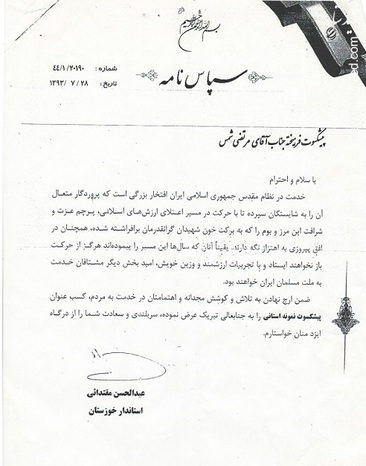 شماره : ۴۴/۱/۲۰۱۹۰
تاریخ : ۱۳۹۳/ ۷ / ۲۸
سپاس نامه
پیشکسوت فرهیخته جناب آقای مرتضی شمس
با سلام و احترام
خدمت در نظام مقدس جمهوری اسلامی ایران افتخار بزرگی است که پروردگار متعال
آن را به شایستگان سپرده تا با حرکت در مسیر اعتلای ارزش‌های اسلامی، پرچم عزت و
شرافت این مرز و بوم را که به برکت خون شهیدان گرانقدرمان برافراشته شده، همچنان در
افق پیروزی به اهتزاز نگه دارند. یقیناً آنان که سال‌ها این مسیر را پیموده‌اند هرگز از حرکت
باز نخواهند ایستاد و با تجربیات ارزشمند و وزین خویش، امید بخش دیگر مشتاقان خدمت
به ملت مسلمان ایران خواهند بود.
ضمن ارج نهادن به تلاش و کوشش مجدانه و اهتمامتان در خدمت به مردم، کسب عنوان
پیشکسوت نمونه استانی را به جنابعالی تبریک عرض نموده، سربلندی و سعادت شما را از درگاه
ایزد منان خواستارم.
عبدالحسن مقتدائی
استاندار خوزستان